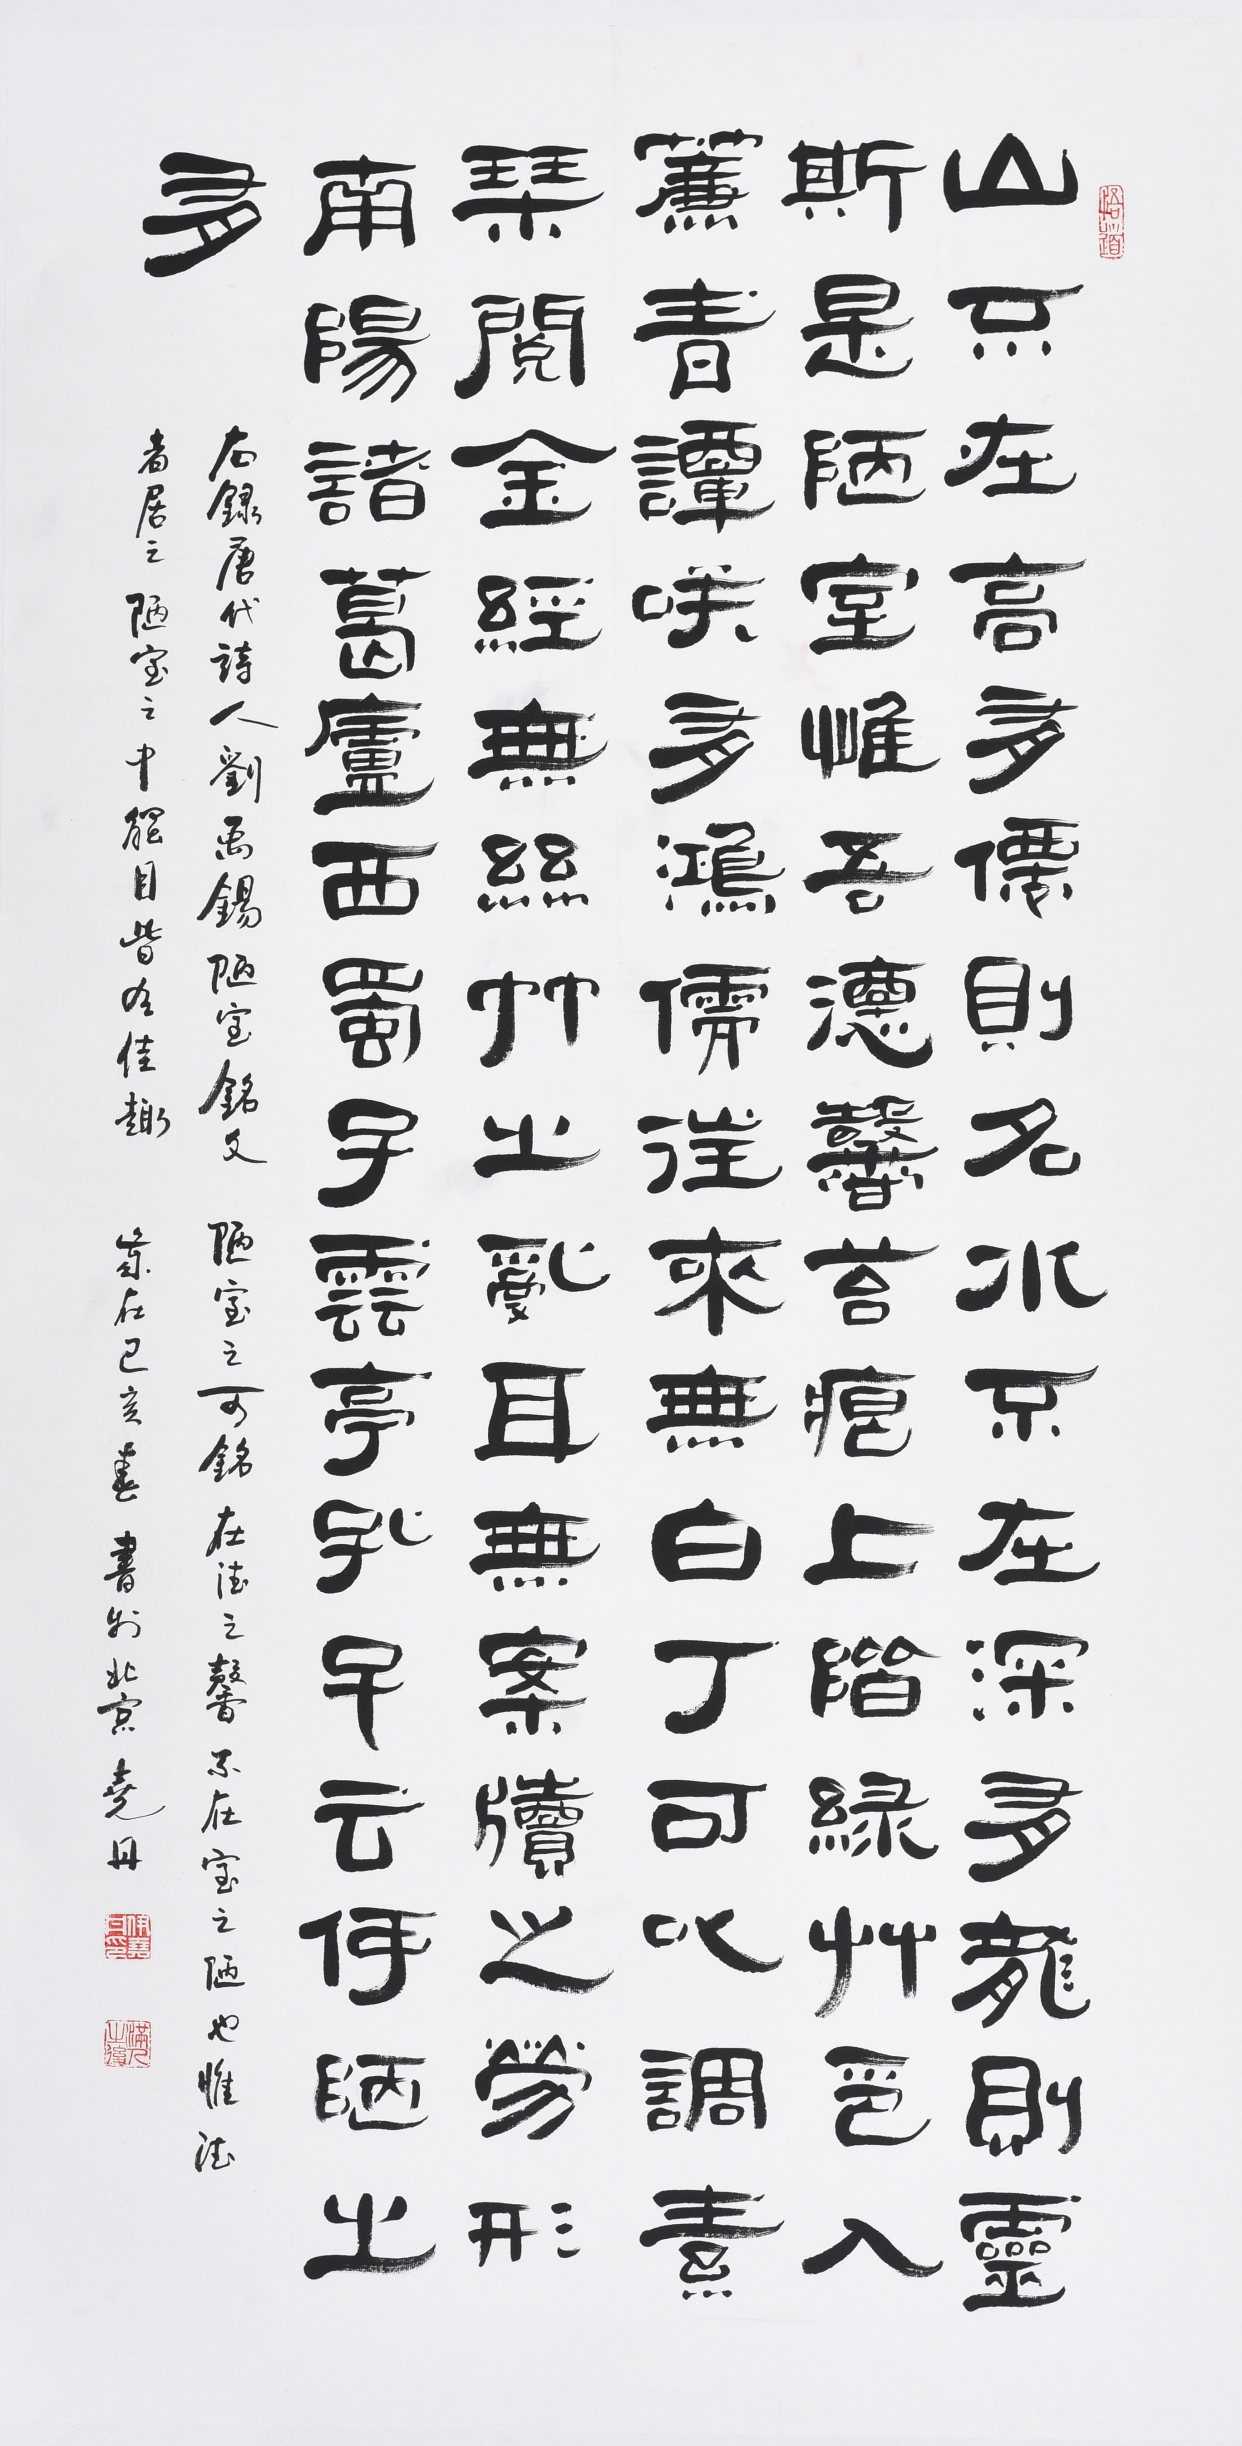 山不在高有僊則名水不在深有龍則靈
斯是陋室惟吾德馨苔痕上階緑艸色入
簾青譚咲有鴻儒往來無白丁可以調素
琴閲金經無絲竹之亂耳無案牘之勞形
南陽諸葛廬西蜀子雲亭孔子云何陋之
有
右録唐代詩人劉禹錫陋室銘文 陋室之可銘在德之馨不在室之陋也惟德
者居之陋室之中觸目皆有佳趣 歲在己亥春書於北京堯丹